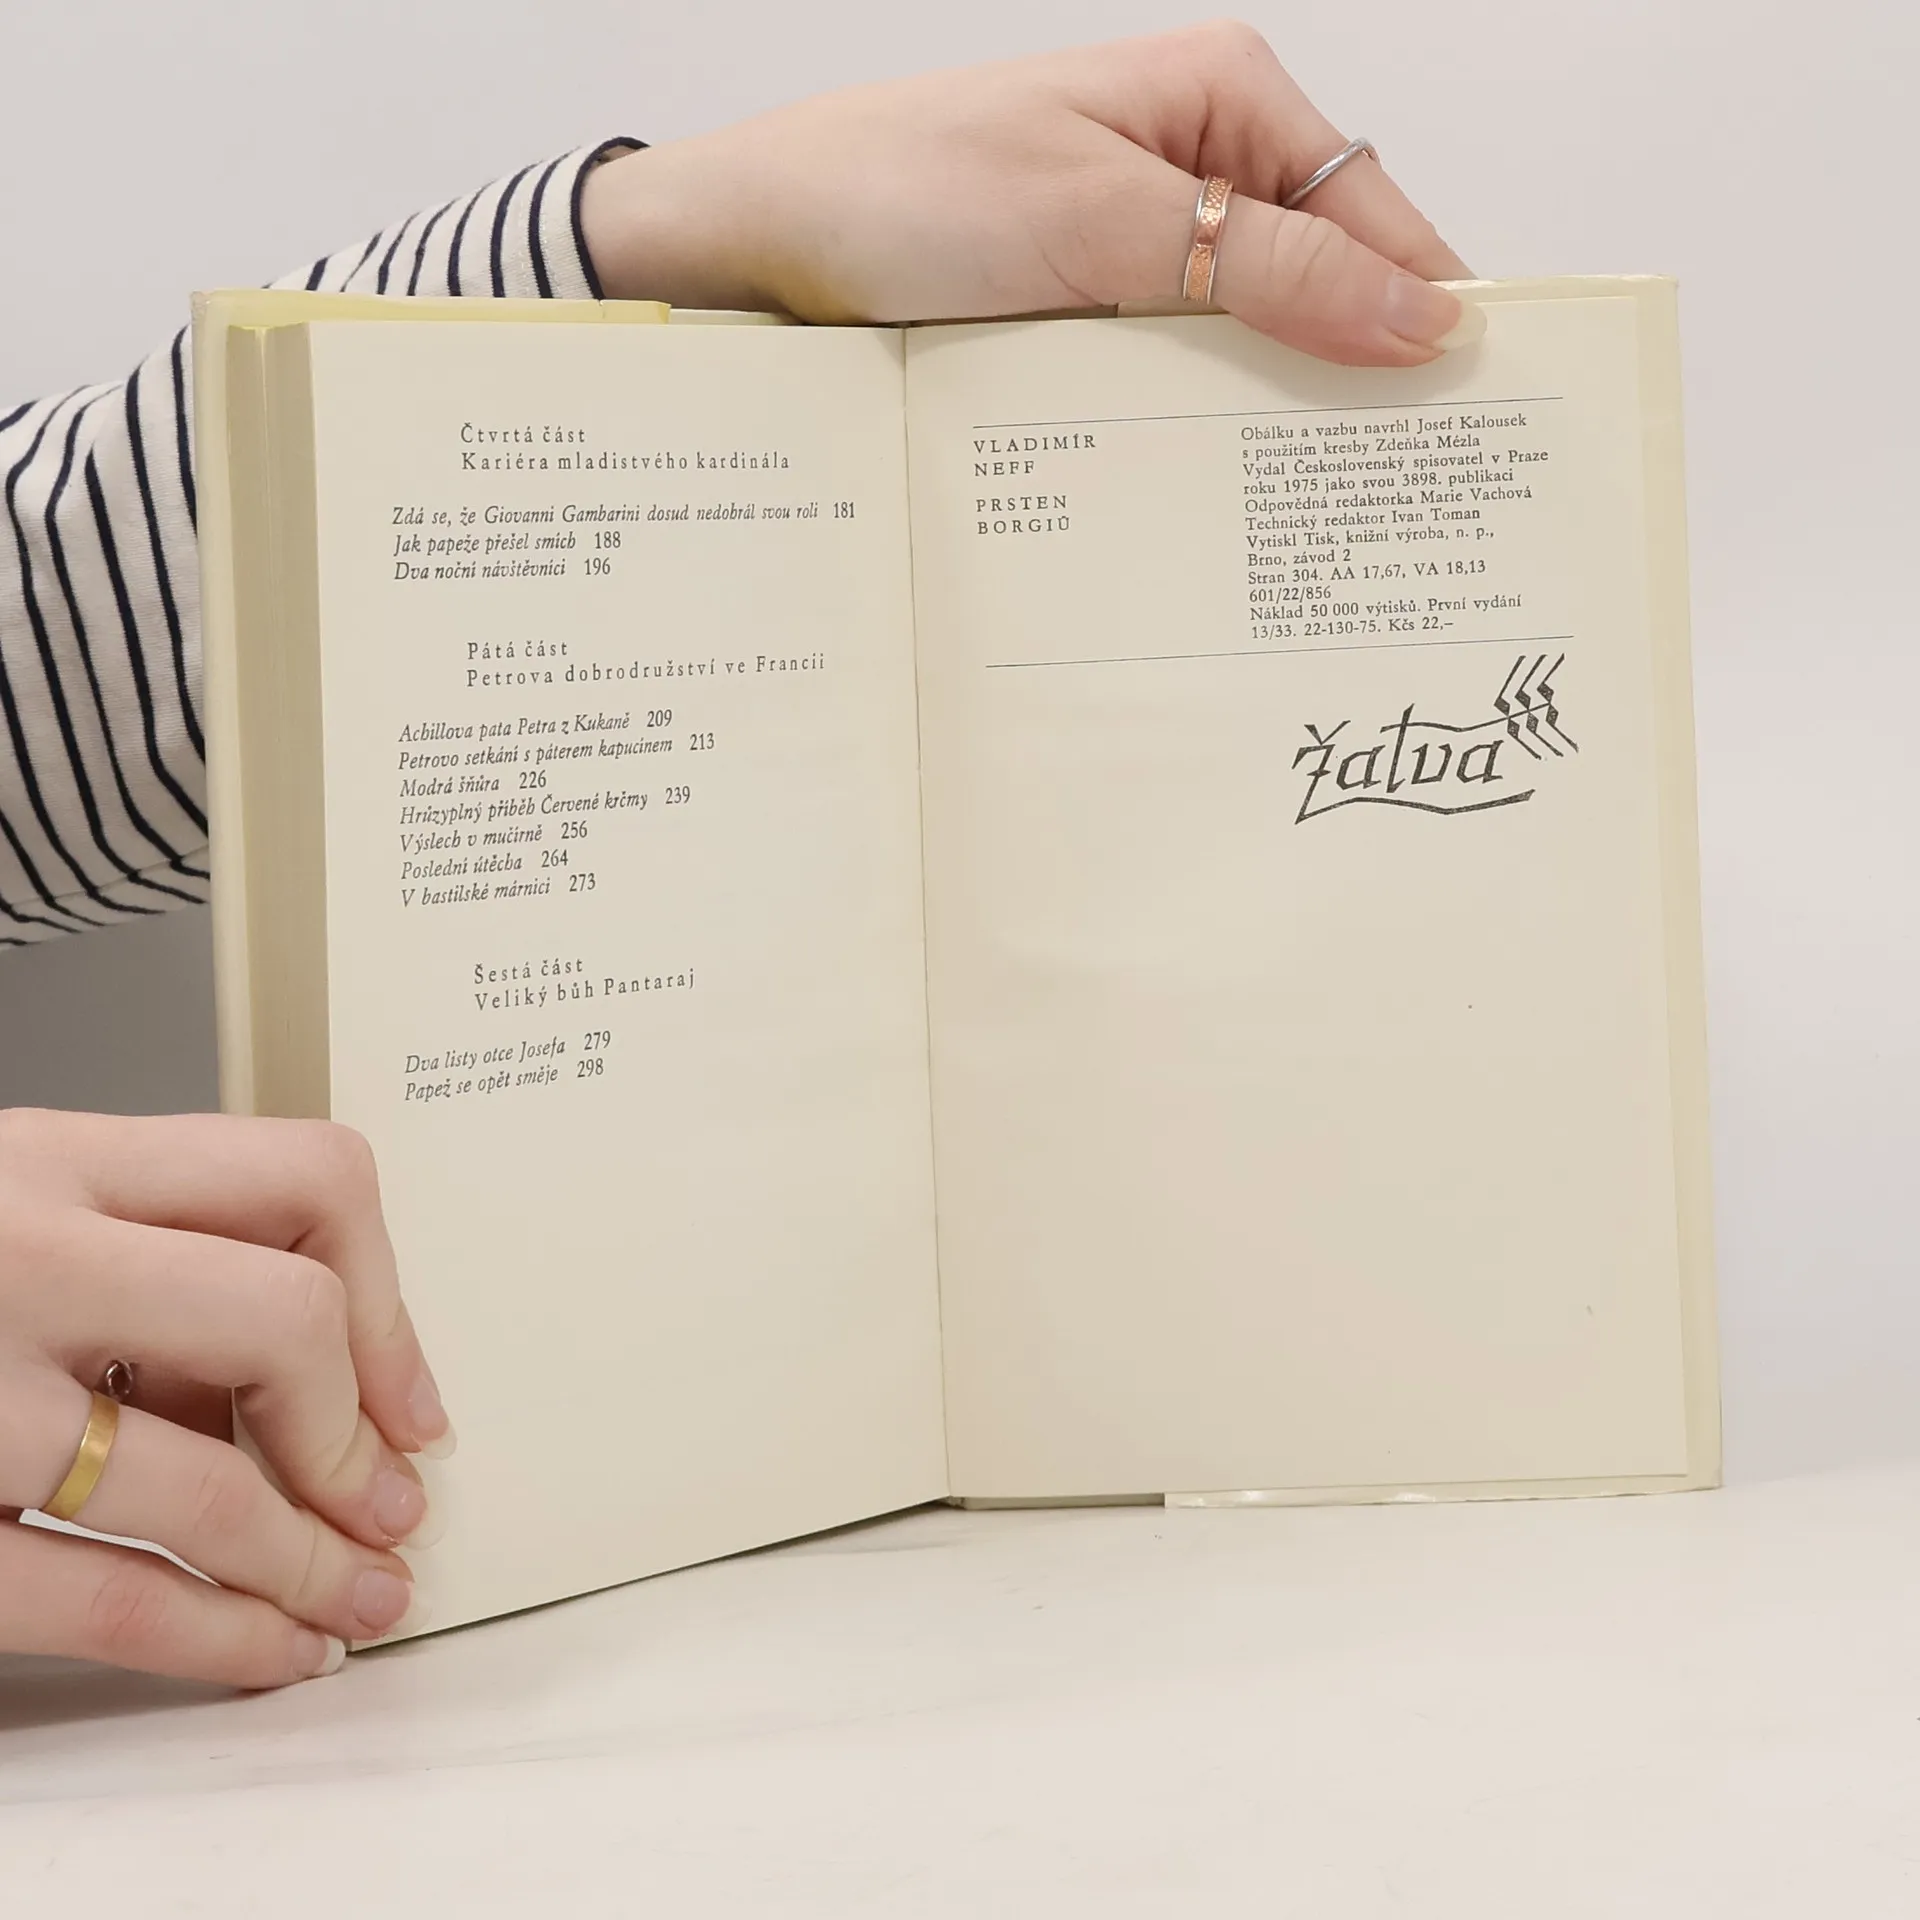 Čtvrtá část
Kariéra mladistvého kardinála
Zdá se, že Giovanni Gambarini dosud nedobrál svou roli 181
Jak papeže přešel smích 188
Dva noční návštěvníci 196
Pátá část
Petrova dobrodružství ve Francii
Achillova pata Petra z Kukaně 209
Petrovo setkání s páterem kapucínem 213
Modrá šňůra 226
Hrůzyplný příběh Červené krčmy 239
Výslech v mučírně 256
Poslední útěcha 264
V bastilské márnici 273
Šestá část
Veliký bůh Pantaraj
Dva listy otce Josefa 279
Papež se opět směje 298
VLADIMÍR
NEFF
PRSTEN
BORGIŮ
Obálku a vazbu navrhl Josef Kalousek
s použitím kresby Zdeňka Mézla
Vydal Československý spisovatel v Praze
roku 1975 jako svou 3898. publikaci
Odpovědná redaktorka Marie Vachová
Technický redaktor Ivan Toman
Vytiskl Tisk, knižní výroba, n. p.,
Brno, závod 2
Stran 304. AA 17,67, VA 18,13
601/22/856
Náklad 50 000 výtisků. První vydání
13/33. 22-130-75. Kčs 22,–
žatva